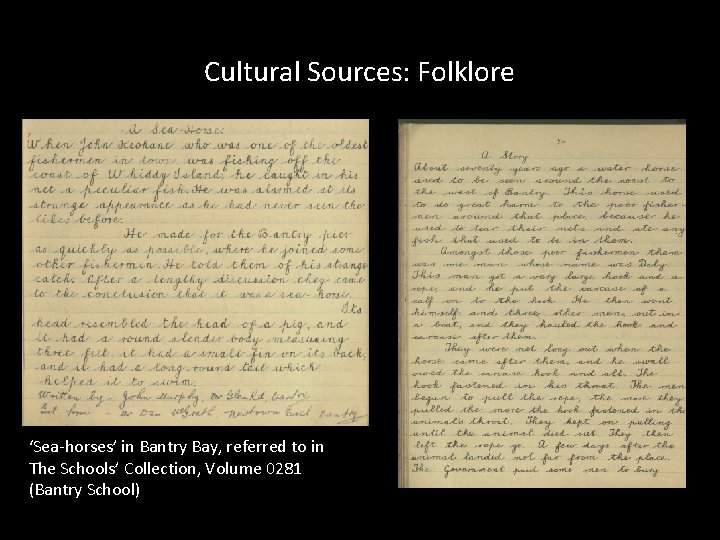 Cultural Sources: Folklore
A Sea-Horse.
When John Keohane who was one of the oldest
fishermen in town, was fishing off the
coast of Whiddy Island, he caught in his
net a peculiar fish. He was alarmed at its
strange appearance as he had never seen the
likes before.
He made for the Bantry pier
as quickly as possible, where he joined some
other fishermen. He told them of his strange
catch. After a lengthy discussion they came
to the conclusion that it was a sea-horse.
Its
head resembled the head of a pig, and
it had a round slender body measuring
three feet, it had a small fin on its back,
and it had a long round tail which
helped it to swim.
Written by - John Murphy,
from - Dan McGrath, Newtown Bantry
A Story
About seventy years ago a water horse
used to be seen around the coast to
the west of Bantry. This horse used
to do great harm to the poor fisher-
men around that place, because he
used to tear their nets and ate any
fish that used to be in them.
Amongst these poor fishermen there
was one man whose name was Daly.
This man got a very large hook and a
rope, and he put the carcase of a
calf on to the hook. He then went
himself and three other men, out in
a boat, and they hauled the hook and
carcase after them.
They were not long out when the
horse came after them, and he swall
owed the carcase hook and all. The
hook fastened in his throat. The men
began to pull the rope, the more they
pulled the more the hook fastened in the
animals throat. They kept on pulling
until the animal died out. They then
left the rope go. A few days after the
animal landed not far from the place.
The Government paid some men to bury
‘Sea-horses’ in Bantry Bay, referred to in
The Schools’ Collection, Volume 0281
(Bantry School)